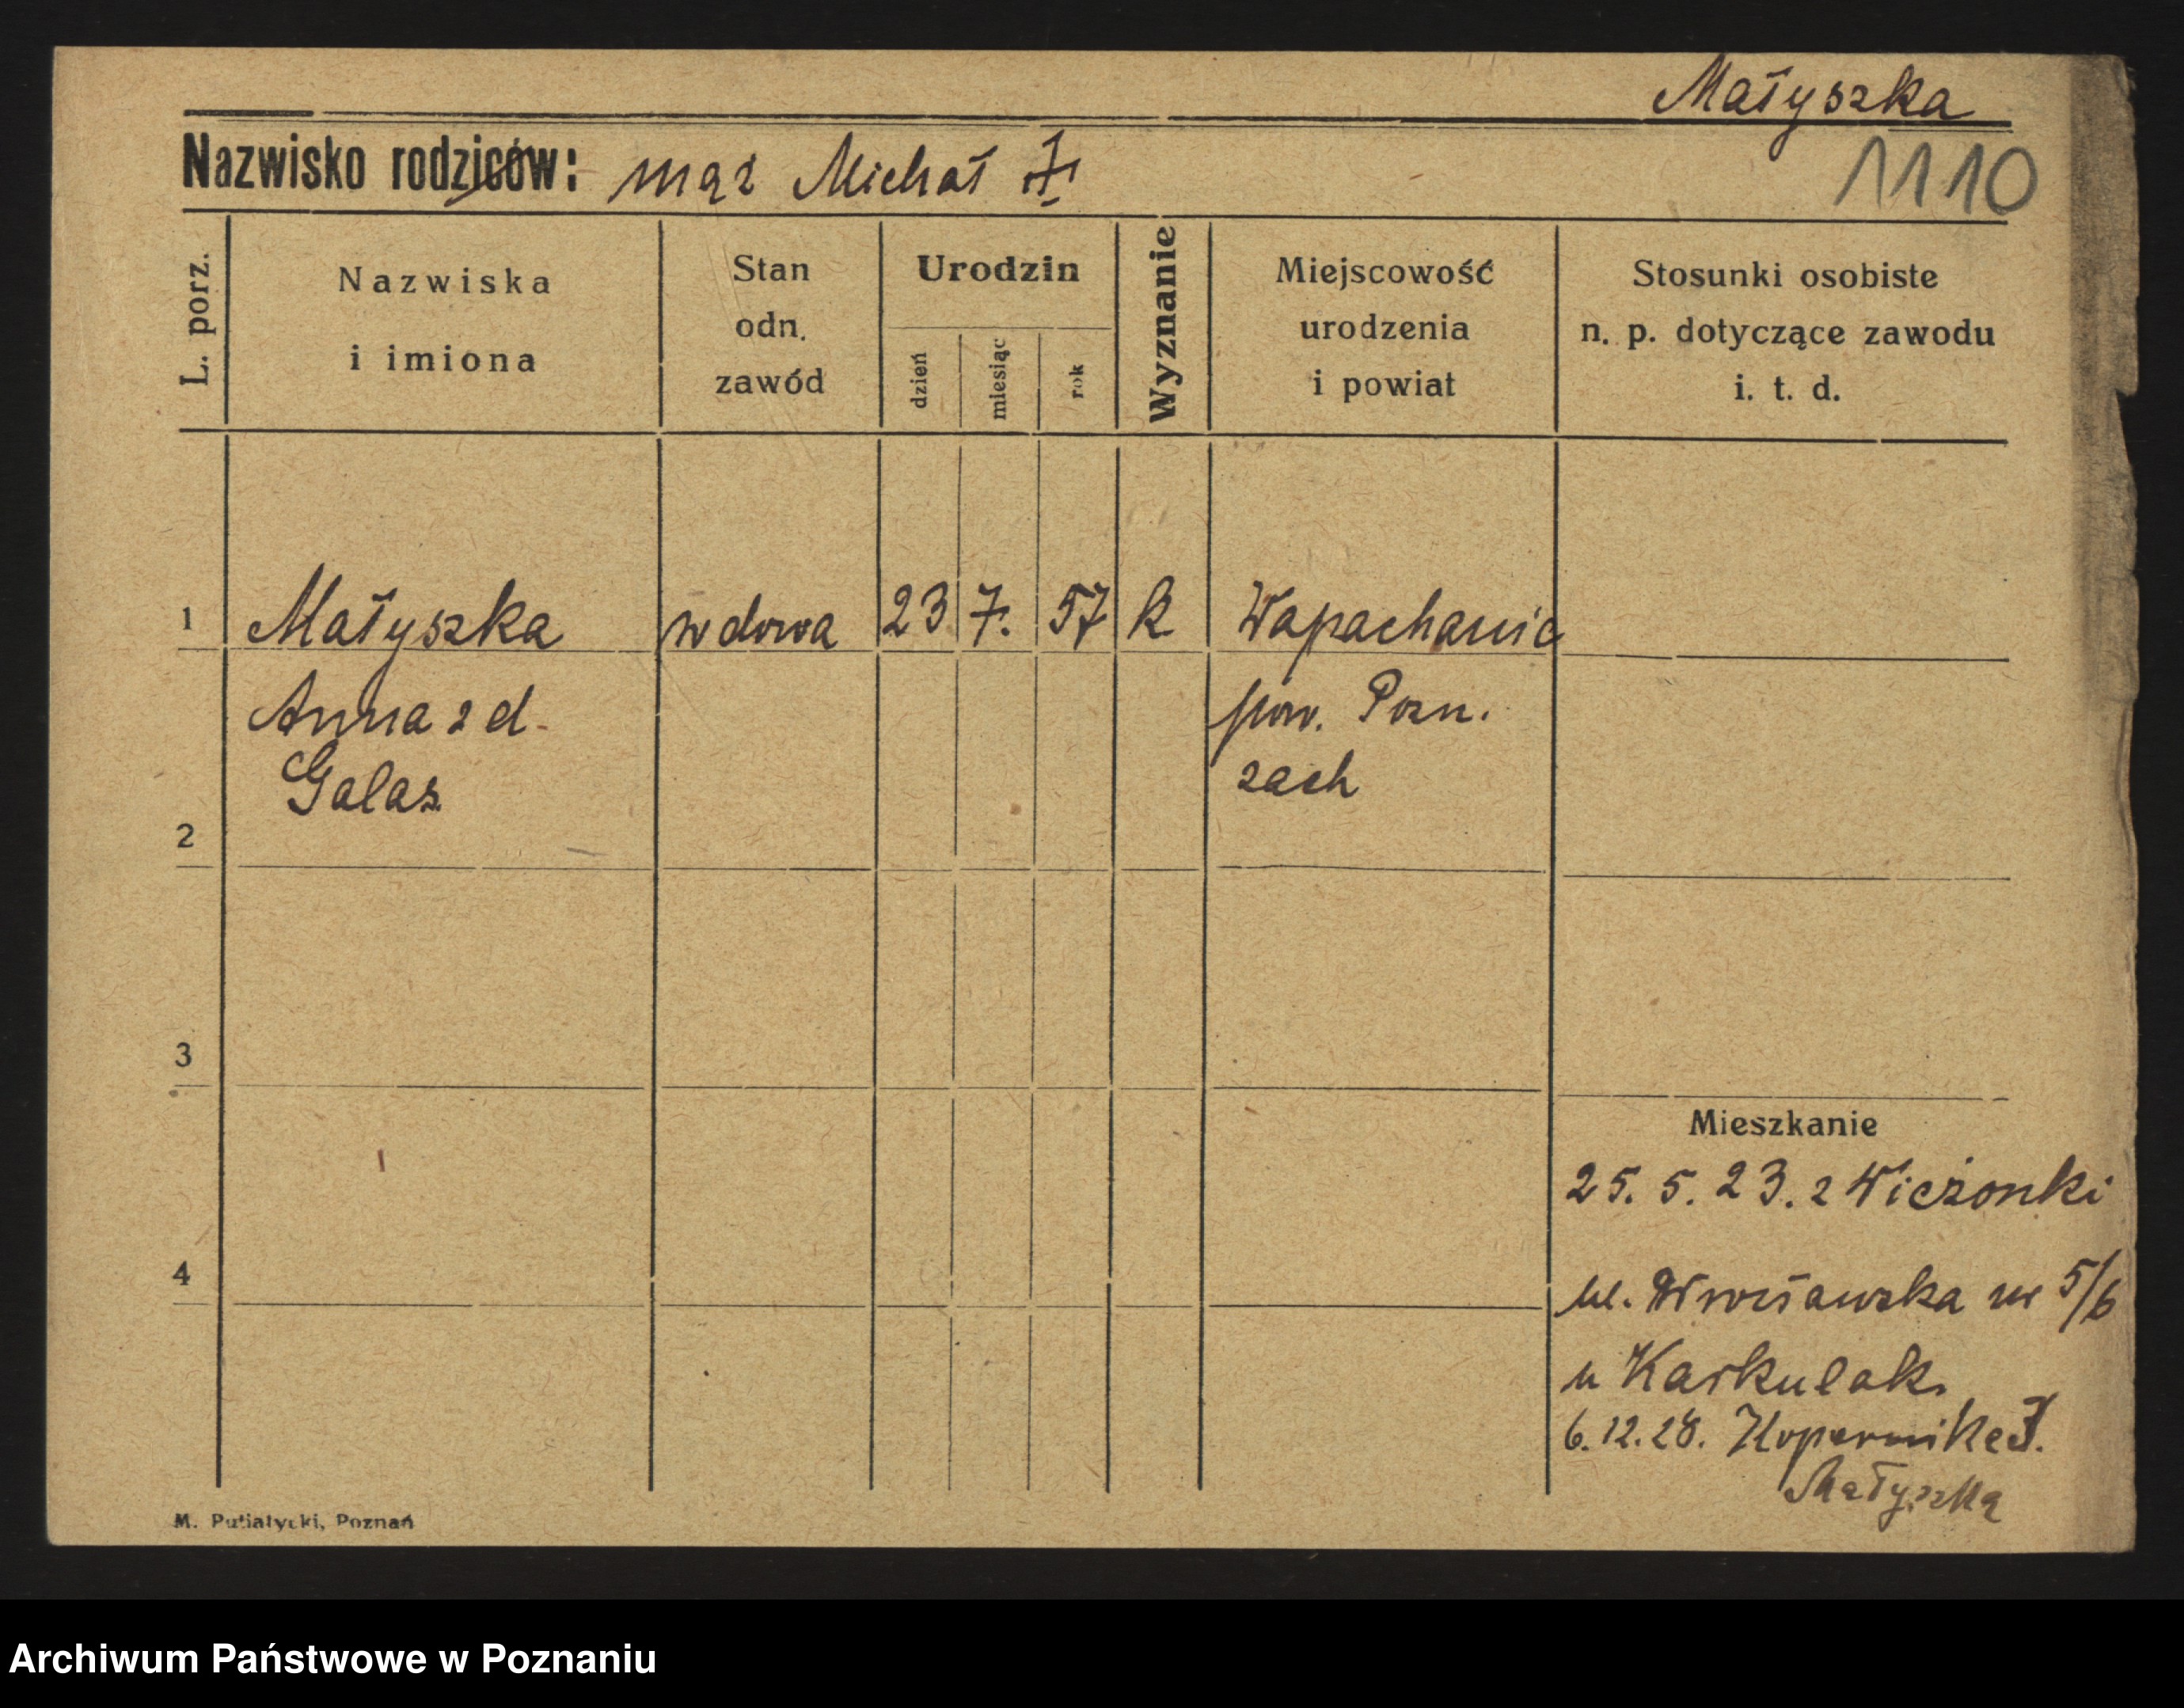 Małyszka
Nazwisko rodziców: mąż Michał
1110
L. porz.
Nazwiska
i imiona
Stan
odn.
zawód
Urodzin
dzień
miesiąc
rok
Wyznanie
Miejscowość
urodzenia
i powiat
Stosunki osobiste
n. p. dotyczące zawodu
i. t. d.
1 Małyszka wdowa 23 7. 57 k
Anna z d.
pow. Pozn.
Galas
zach
2
3
Mieszkanie
25. 5. 23. z Wieżonki
4
ul. Wrocławska nr 5/6
u Karkulak.
6.12.28.
Małyszka
M. Putiatycki, Poznań
Archiwum Państwowe w Poznaniu